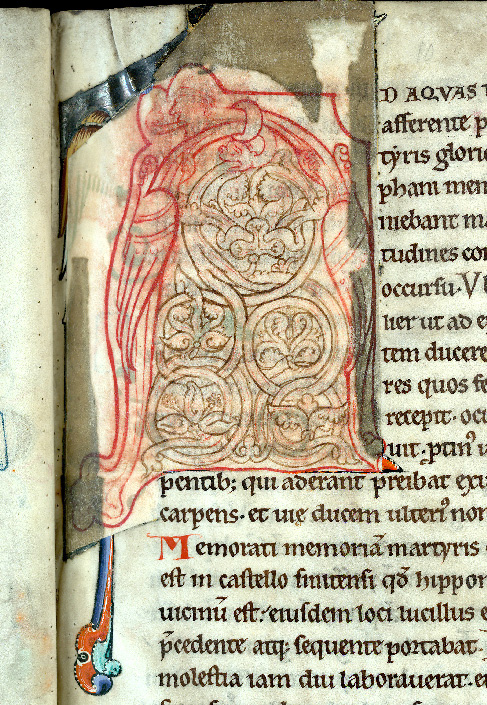 D AQVAS
afferente p
tyris glorio
phani mem
niebant ma
tudines con
occursu. Vb
lier ut ad e
tem ducere
res quos fe
recepit. ocu
uit. ptin' u
pentib; qui aderant preibat exu
carpens. et uię ducem ulteri' non
Memorati memoriā martyris
est in castello sinitensi qđ hippon
uicinū est. eiusdem loci lucillus e
p̄cedente atq; sequente portabat.
molestia iam diu laborauerat. e